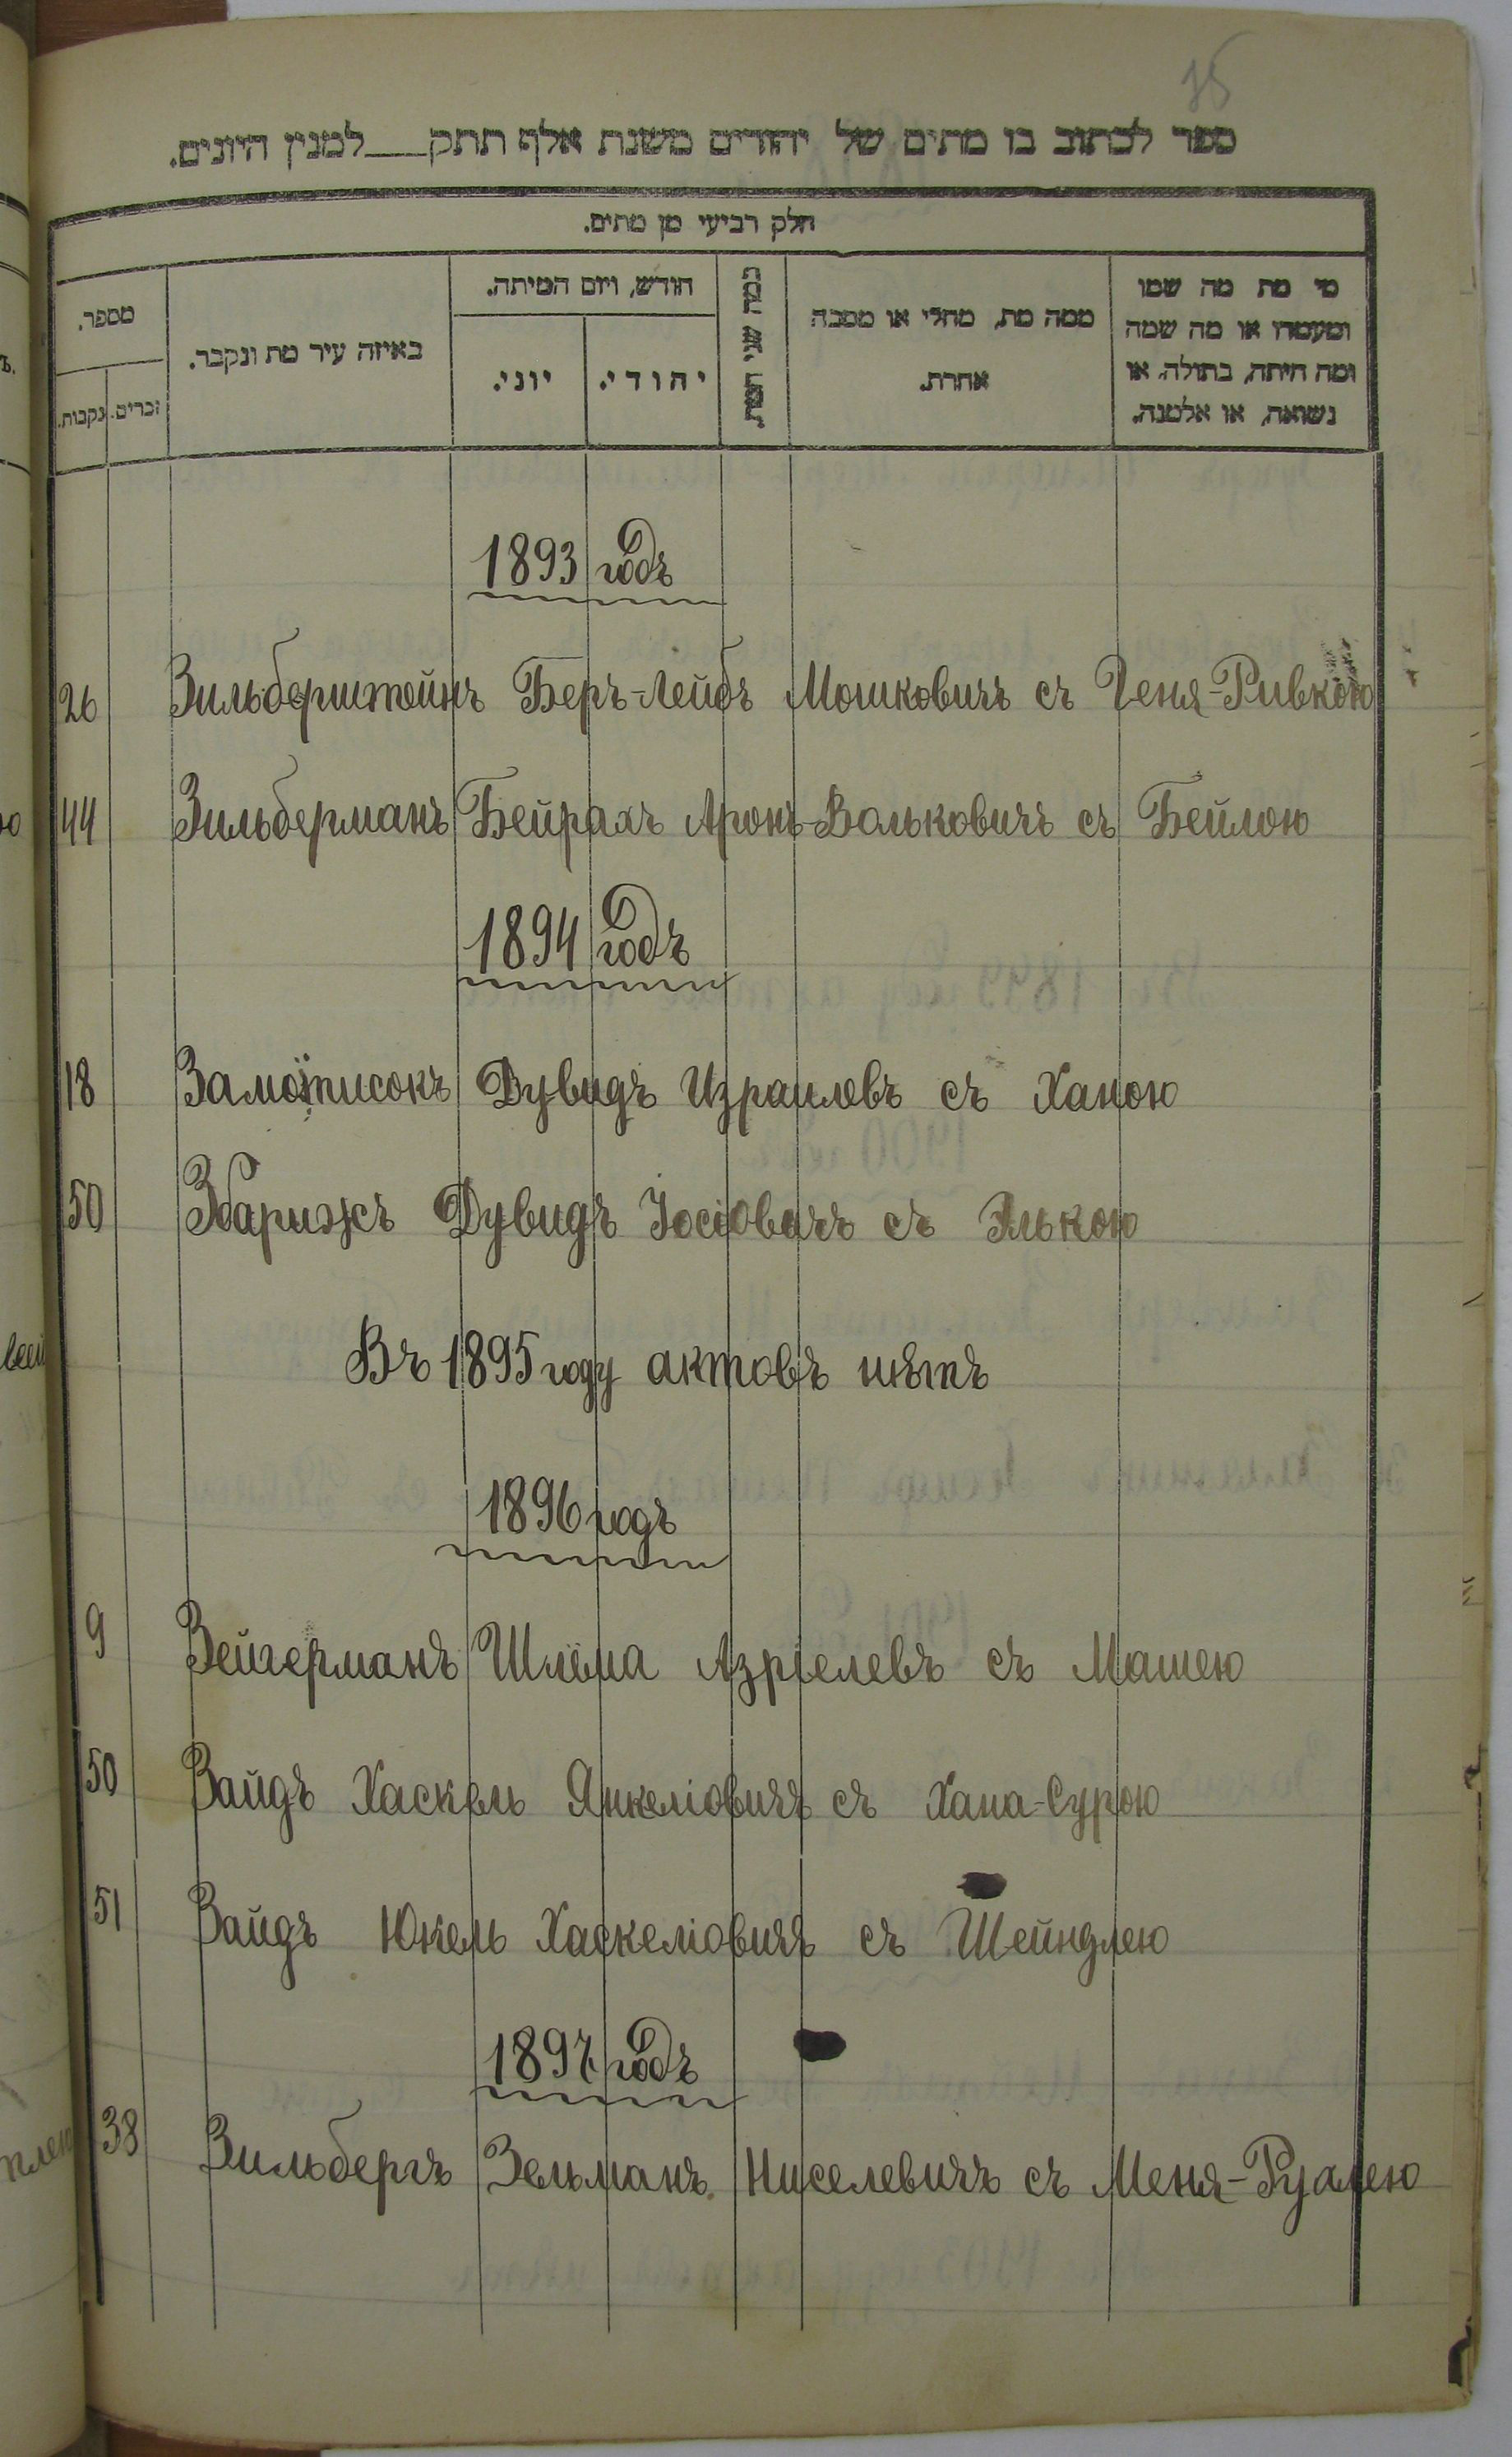 ספר לכתוב בו מתים של יהודים משנת אלף תתק___למנין היונים.
חלק רביעי מן מתים.
מספר.
נקבות.
זכרים.
באיזה עיר מת ונקבר.
חודש, ויום המיתה.
יוני.
יהודי.
כמה שני המת.
ממה מת, מחלי או מסבה
אחרת.
מי מת מה שמו
ומעמדו או מה שמה
ומה היתה, בתולה, או
נשואה, או אלמנה.
1893 годъ
26 Зильберштейнъ Беръ-Лейбъ Мошковичъ съ Геня-Ривкою
44 Зильберманъ Бейрахъ Аронъ-Вольковичъ съ Бейлою
1894 годъ
18 Дувидъ Израилевъ съ Ханою
50 Збарижъ Дувидъ Іосіовичъ съ Элькою
Въ 1895 году актовъ нѣтъ
1896 годъ
9 Зейгерманъ Шлёма Азріелевъ съ Машею
50 Зайдъ Хаскель Янкеліовичъ съ Хана-Сурою
51 Зайдъ Юкель Хаскеліовичъ съ Шейндлею
1897 годъ
38 Зильбергъ Зельманъ Ниселевичъ съ Меня-Рузлею